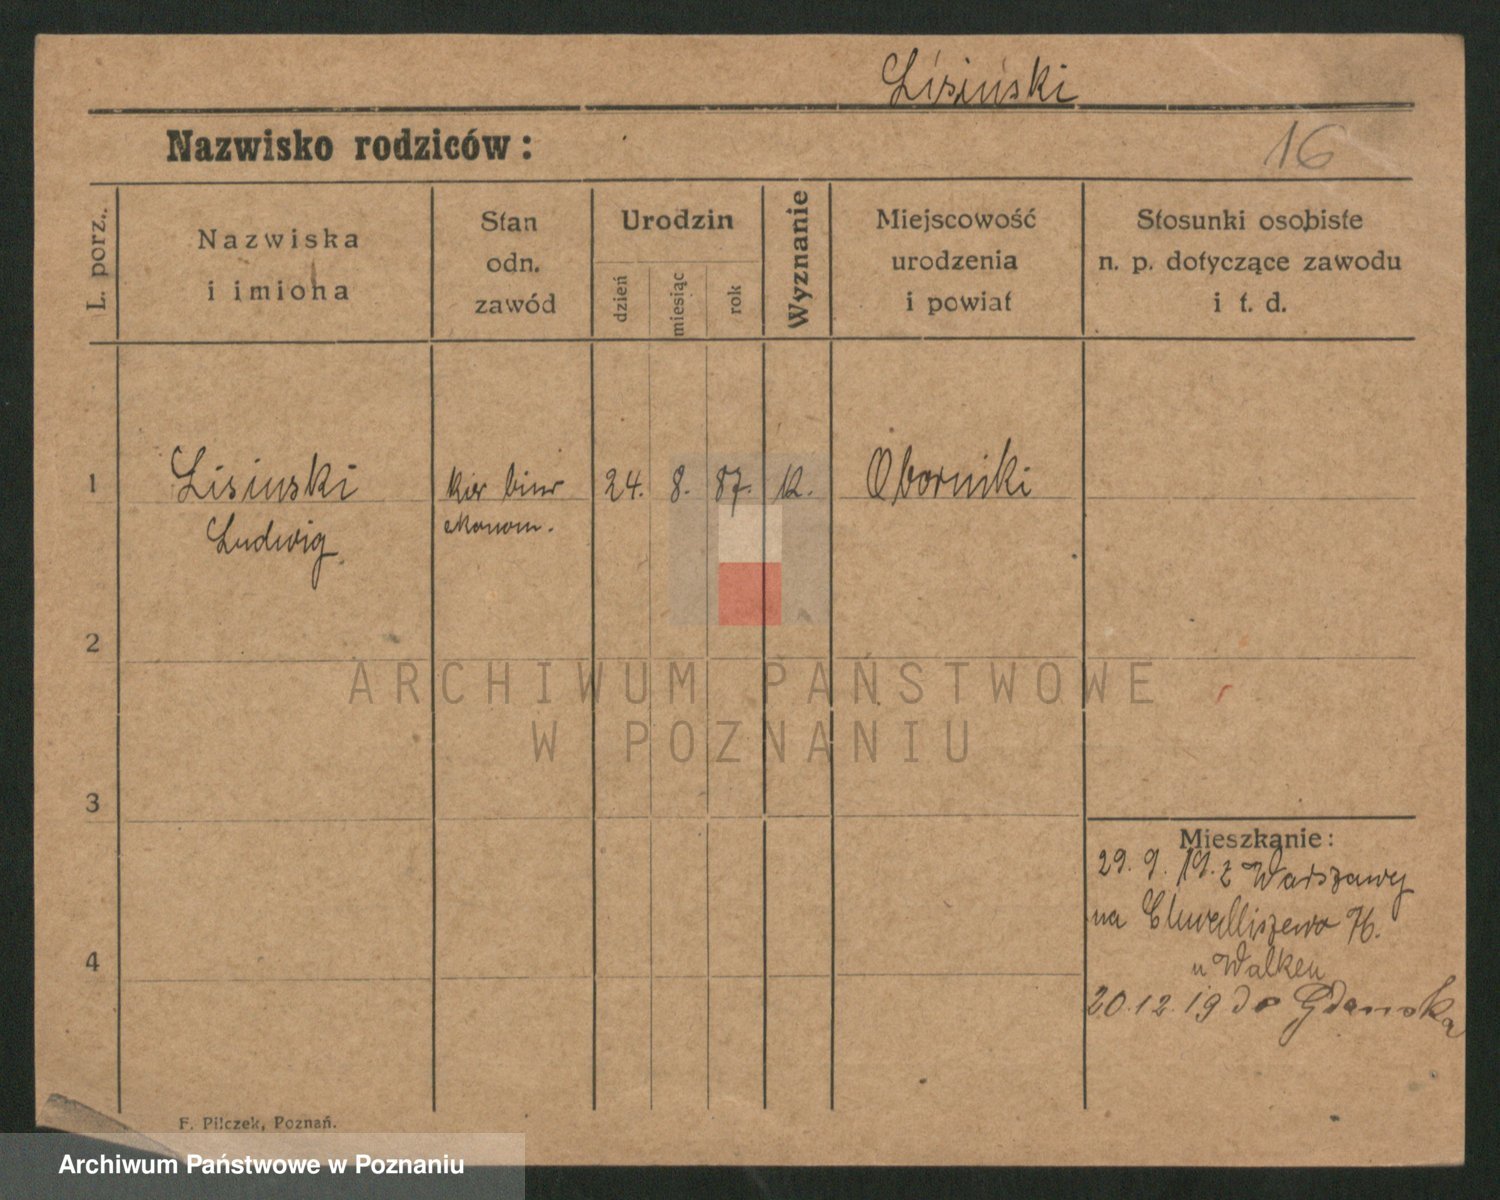 Lisiński
Nazwisko rodziców:
16
L. porz..
Nazwiska
i imiona
Stan
odn.
zawód
Urodzin
dzień
miesiąc
rok
Wyznanie
Miejscowość
urodzenia
i powiat
Stosunki osobiste
n. p. dotyczące zawodu
i t. d.
1
Lisinski
Ludwig
kier biur
ekonom.
24.
8.
87.
K.
Oborniki
2
3
4
Mieszkanie:
29. 9. 19. z Warszawy
na Chwalliszewo 76.
u Walken
20.12.19 do Gdanska
F. Pilczek, Poznań.
ARCHIWUM PAŃSTWOWE
W POZNANIU
Archiwum Państwowe w Poznaniu